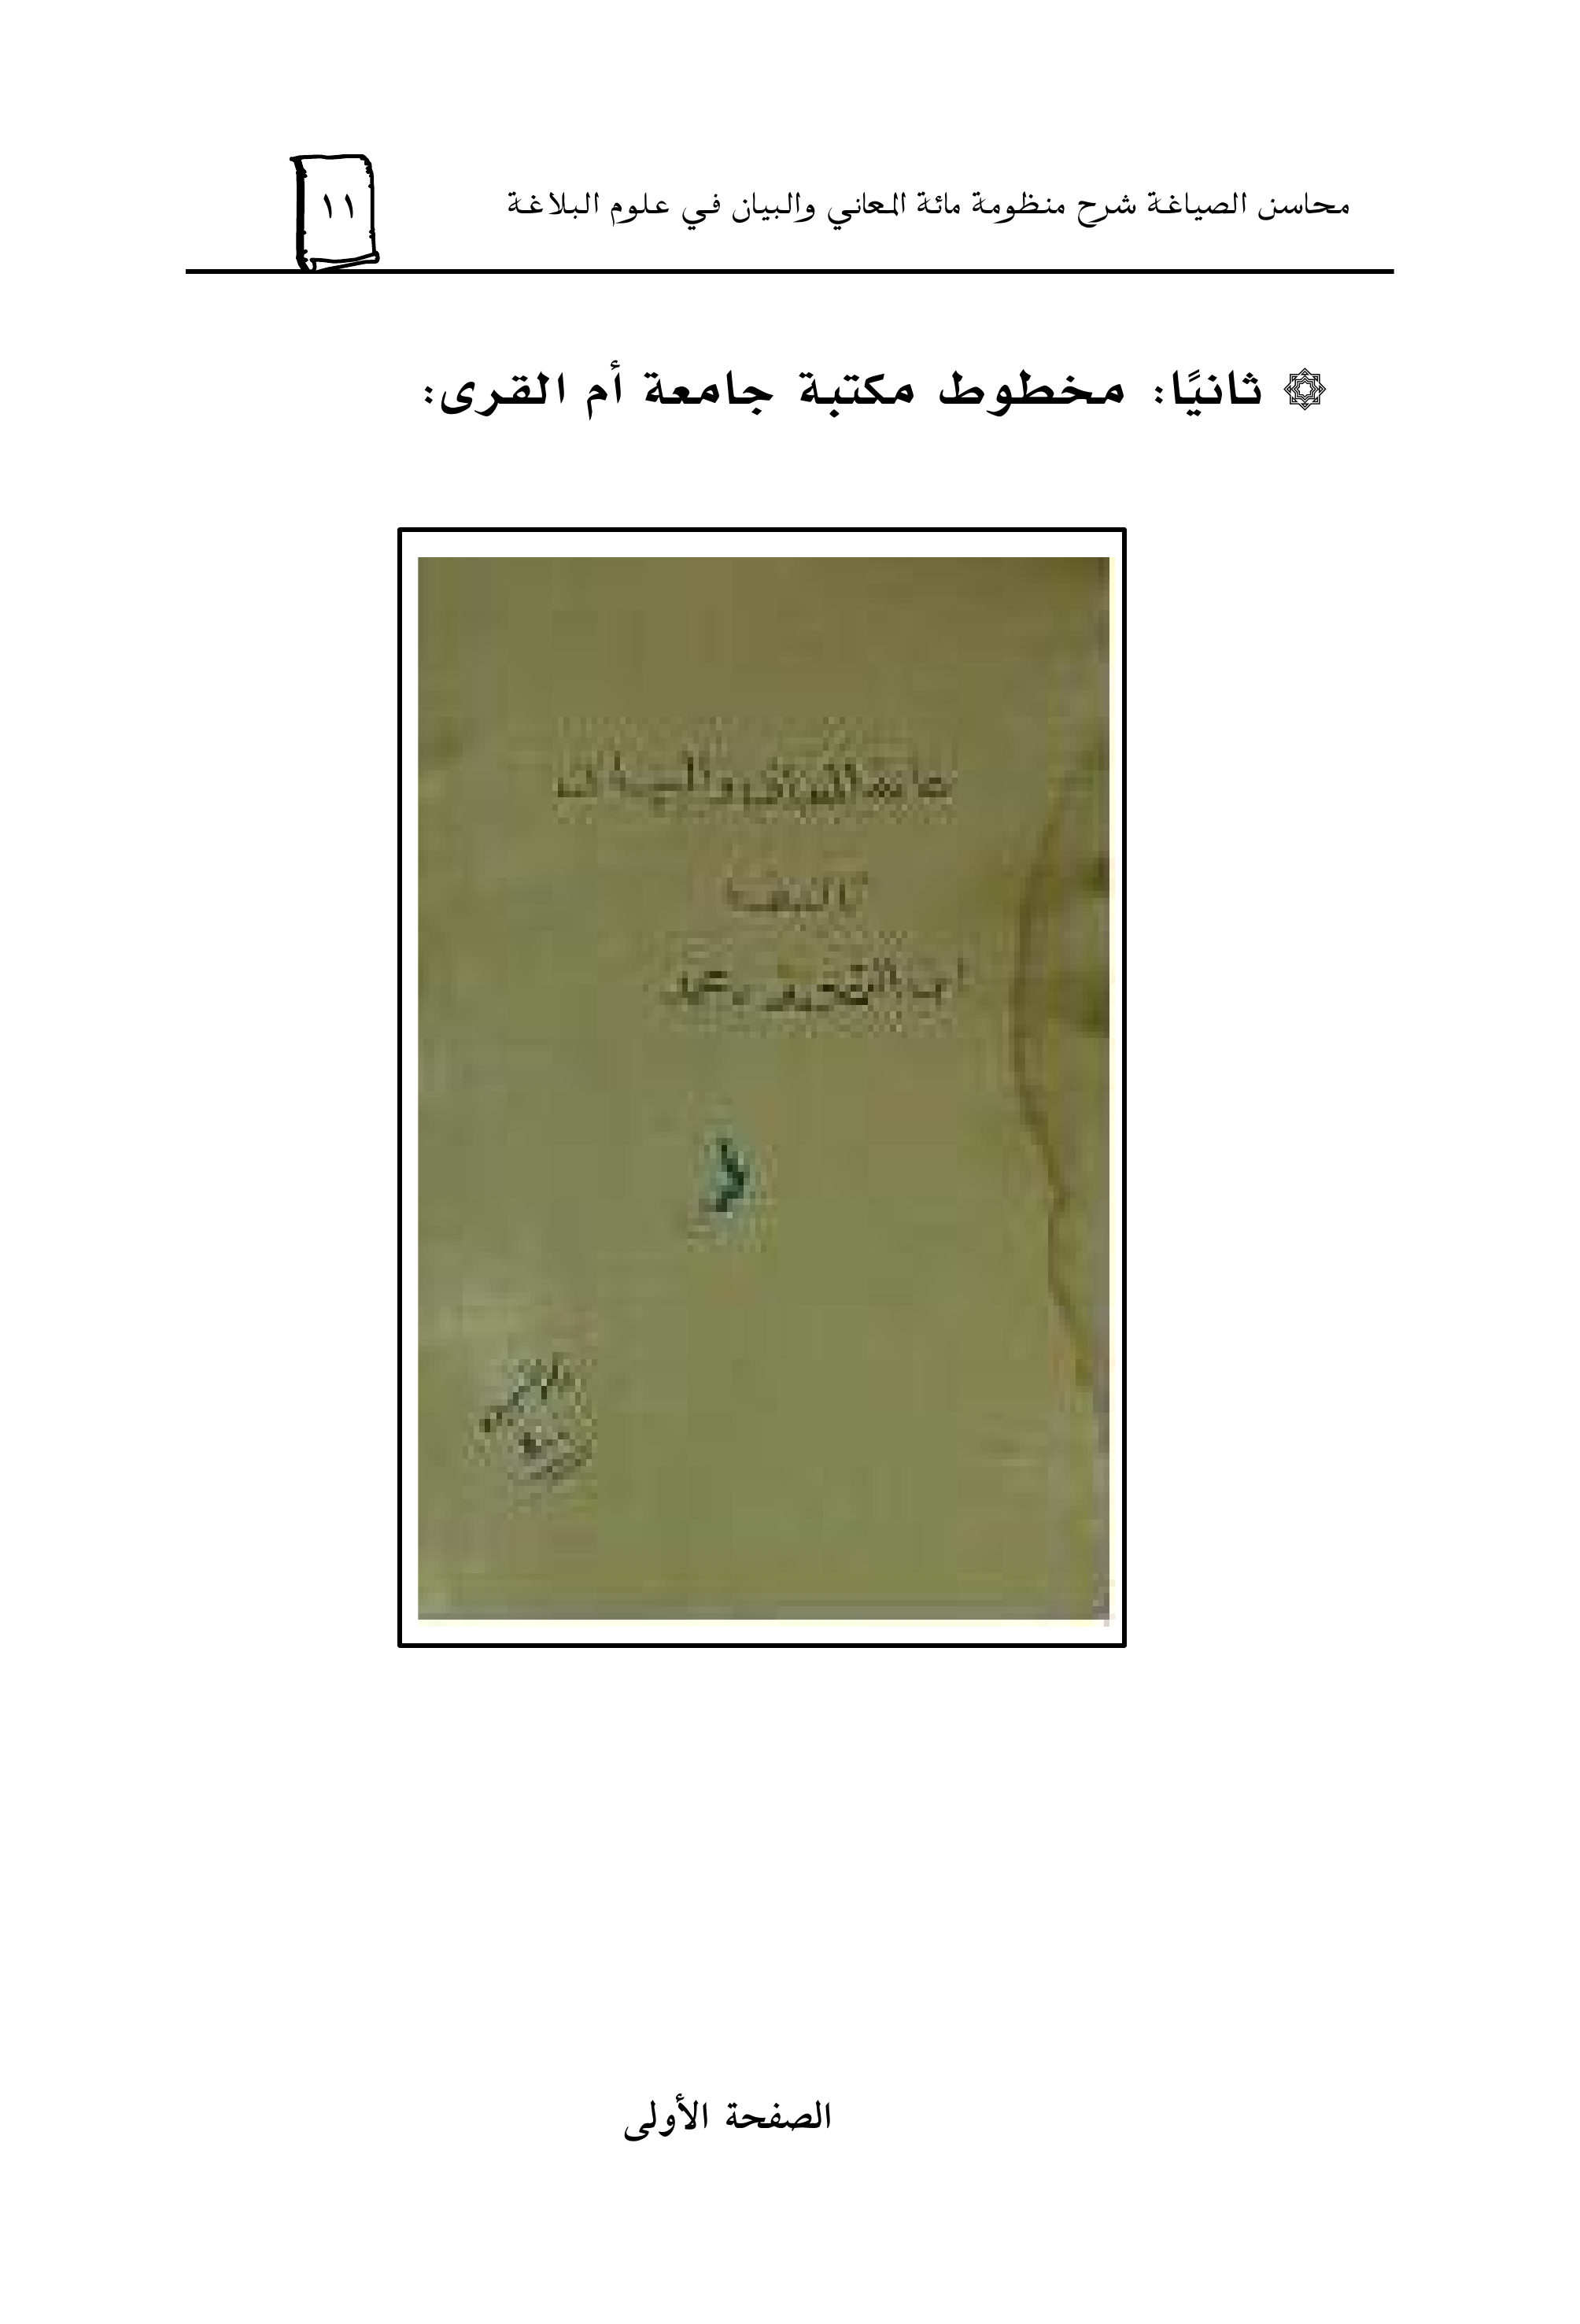 محاسن الصياغة شرح منظومة مائة المعاني والبيان في علوم البلاغة
١١
ثانيًا: مخطوط مكتبة جامعة أم القرى:
والبيان
تاليف
محمد
الصفحة الأولى